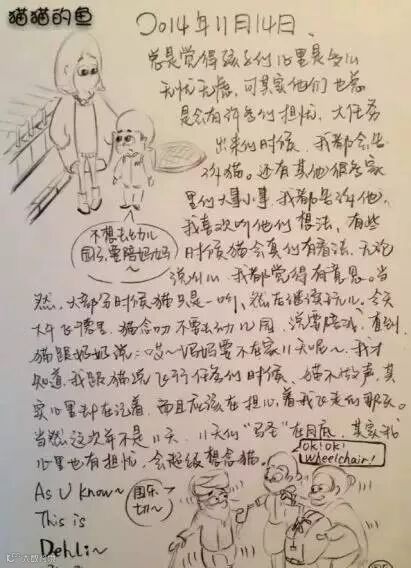 猫猫的鱼
2014年11月14日.
总是觉得孩子们心里是多么
无忧无虑,可其实他们也总
是会有许多的担忧,大任务
出来的时候,我都会告
诉猫。还有其他很多家
里的大事小事,我都告诉他,
我喜欢听他们想法,有些
时候猫会真的有看法,无论
说什么,我都觉得有意思。当
不想去幼儿
园,要陪妈妈
然,大部分时候猫只是一听,然后继续玩儿。今天
大午飞德里,猫念叨不要去幼儿园,说要陪我,直到
猫跟奶奶说:哎~妈妈要不在家八天呢~,我才
知道,我跟猫说飞行任务的时候,猫不做声,其
实心里却在记着,而且应该在担心着我飞走的那天。
当然这次并不是八天,八天的“马圣”在月底,其实我
心里也有担忧,会超级想念猫。
OK! OK!
wheelchair!
As U know~
This is
Dehli~